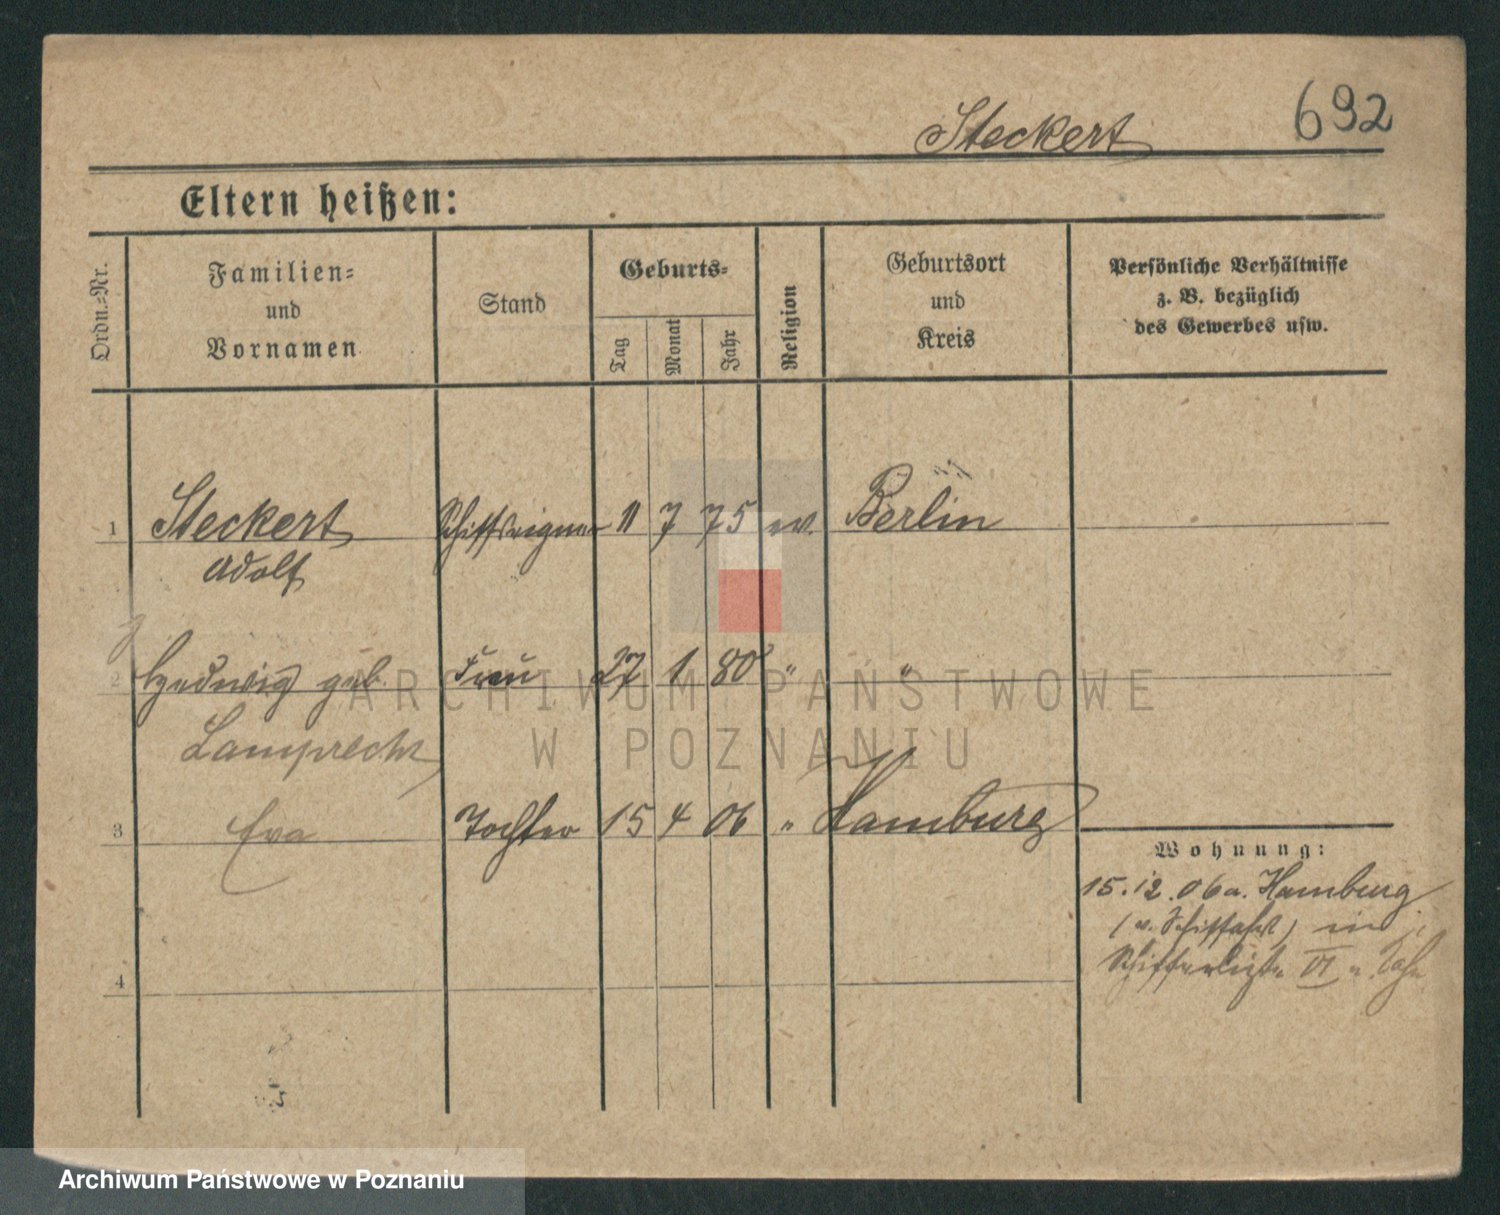 692
Steckert
Eltern heißen:
Ordn.=Nr.
Familien=
und
Vornamen
Stand
Geburts=
Tag
Monat
Jahr
Religion
Geburtsort
und
Kreis
Persönliche Verhältnisse
z. B. bezüglich
des Gewerbes usw.
1 Steckert Schiffseigner 11 7 75 ev. Berlin
Adolf
2 Hedwig geb. Frau 27 1 80 " "
Lamprecht
3 Eva Tochter 15 4 06 " Hamburg
Wohnung:
15.12.06 a. Hamburg
(a. Schiffahrt) in
VI
4
ARCHIWUM PAŃSTWOWE
W POZNANIU
Archiwum Państwowe w Poznaniu